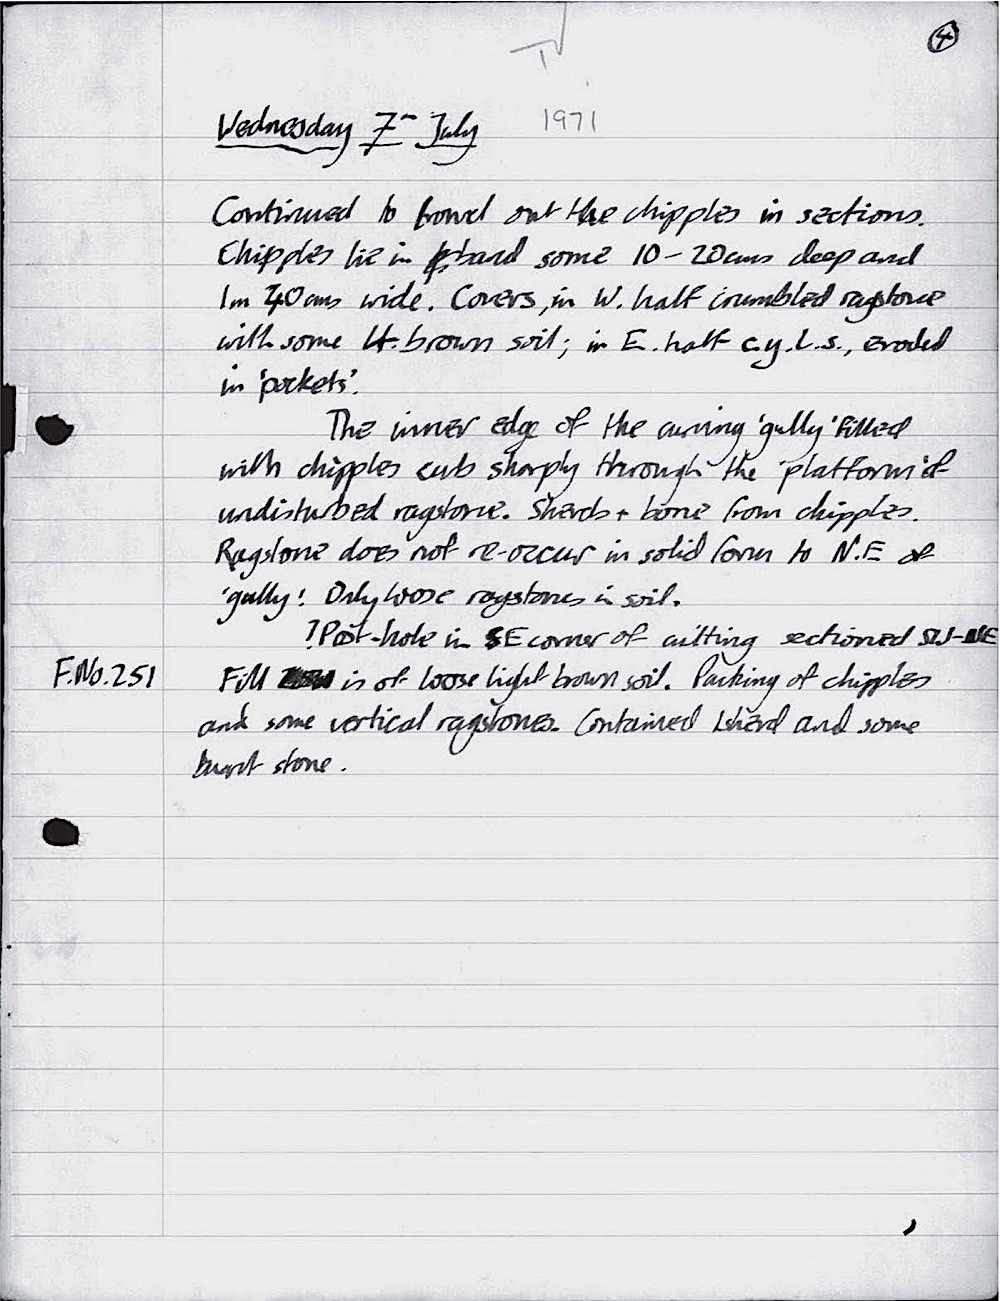 4
Wednesday 7th July 1971
Continued to trowel out the chipples in sections.
Chipples lie in band some 10-20cms deep and
1m 40cms wide. Covers, in W. half crumbled ragstone
with some lt. brown soil; in E. half c.y.l.s., eroded
in 'pockets'.
The inner edge of the curving 'gully' filled
with chipples cuts sharply through the 'platform' of
undisturbed ragstone. Sherds + bone from chipples.
Ragstone does not re-occur in solid form to N.E of
'gully'. Only loose ragstones in soil.
?Post-hole in SE corner of cutting sectioned SW-NE
F.No.251 Fill is of loose light brown soil. Packing of chipples
and some vertical ragstones. Contained 1 sherd and some
burnt stone.